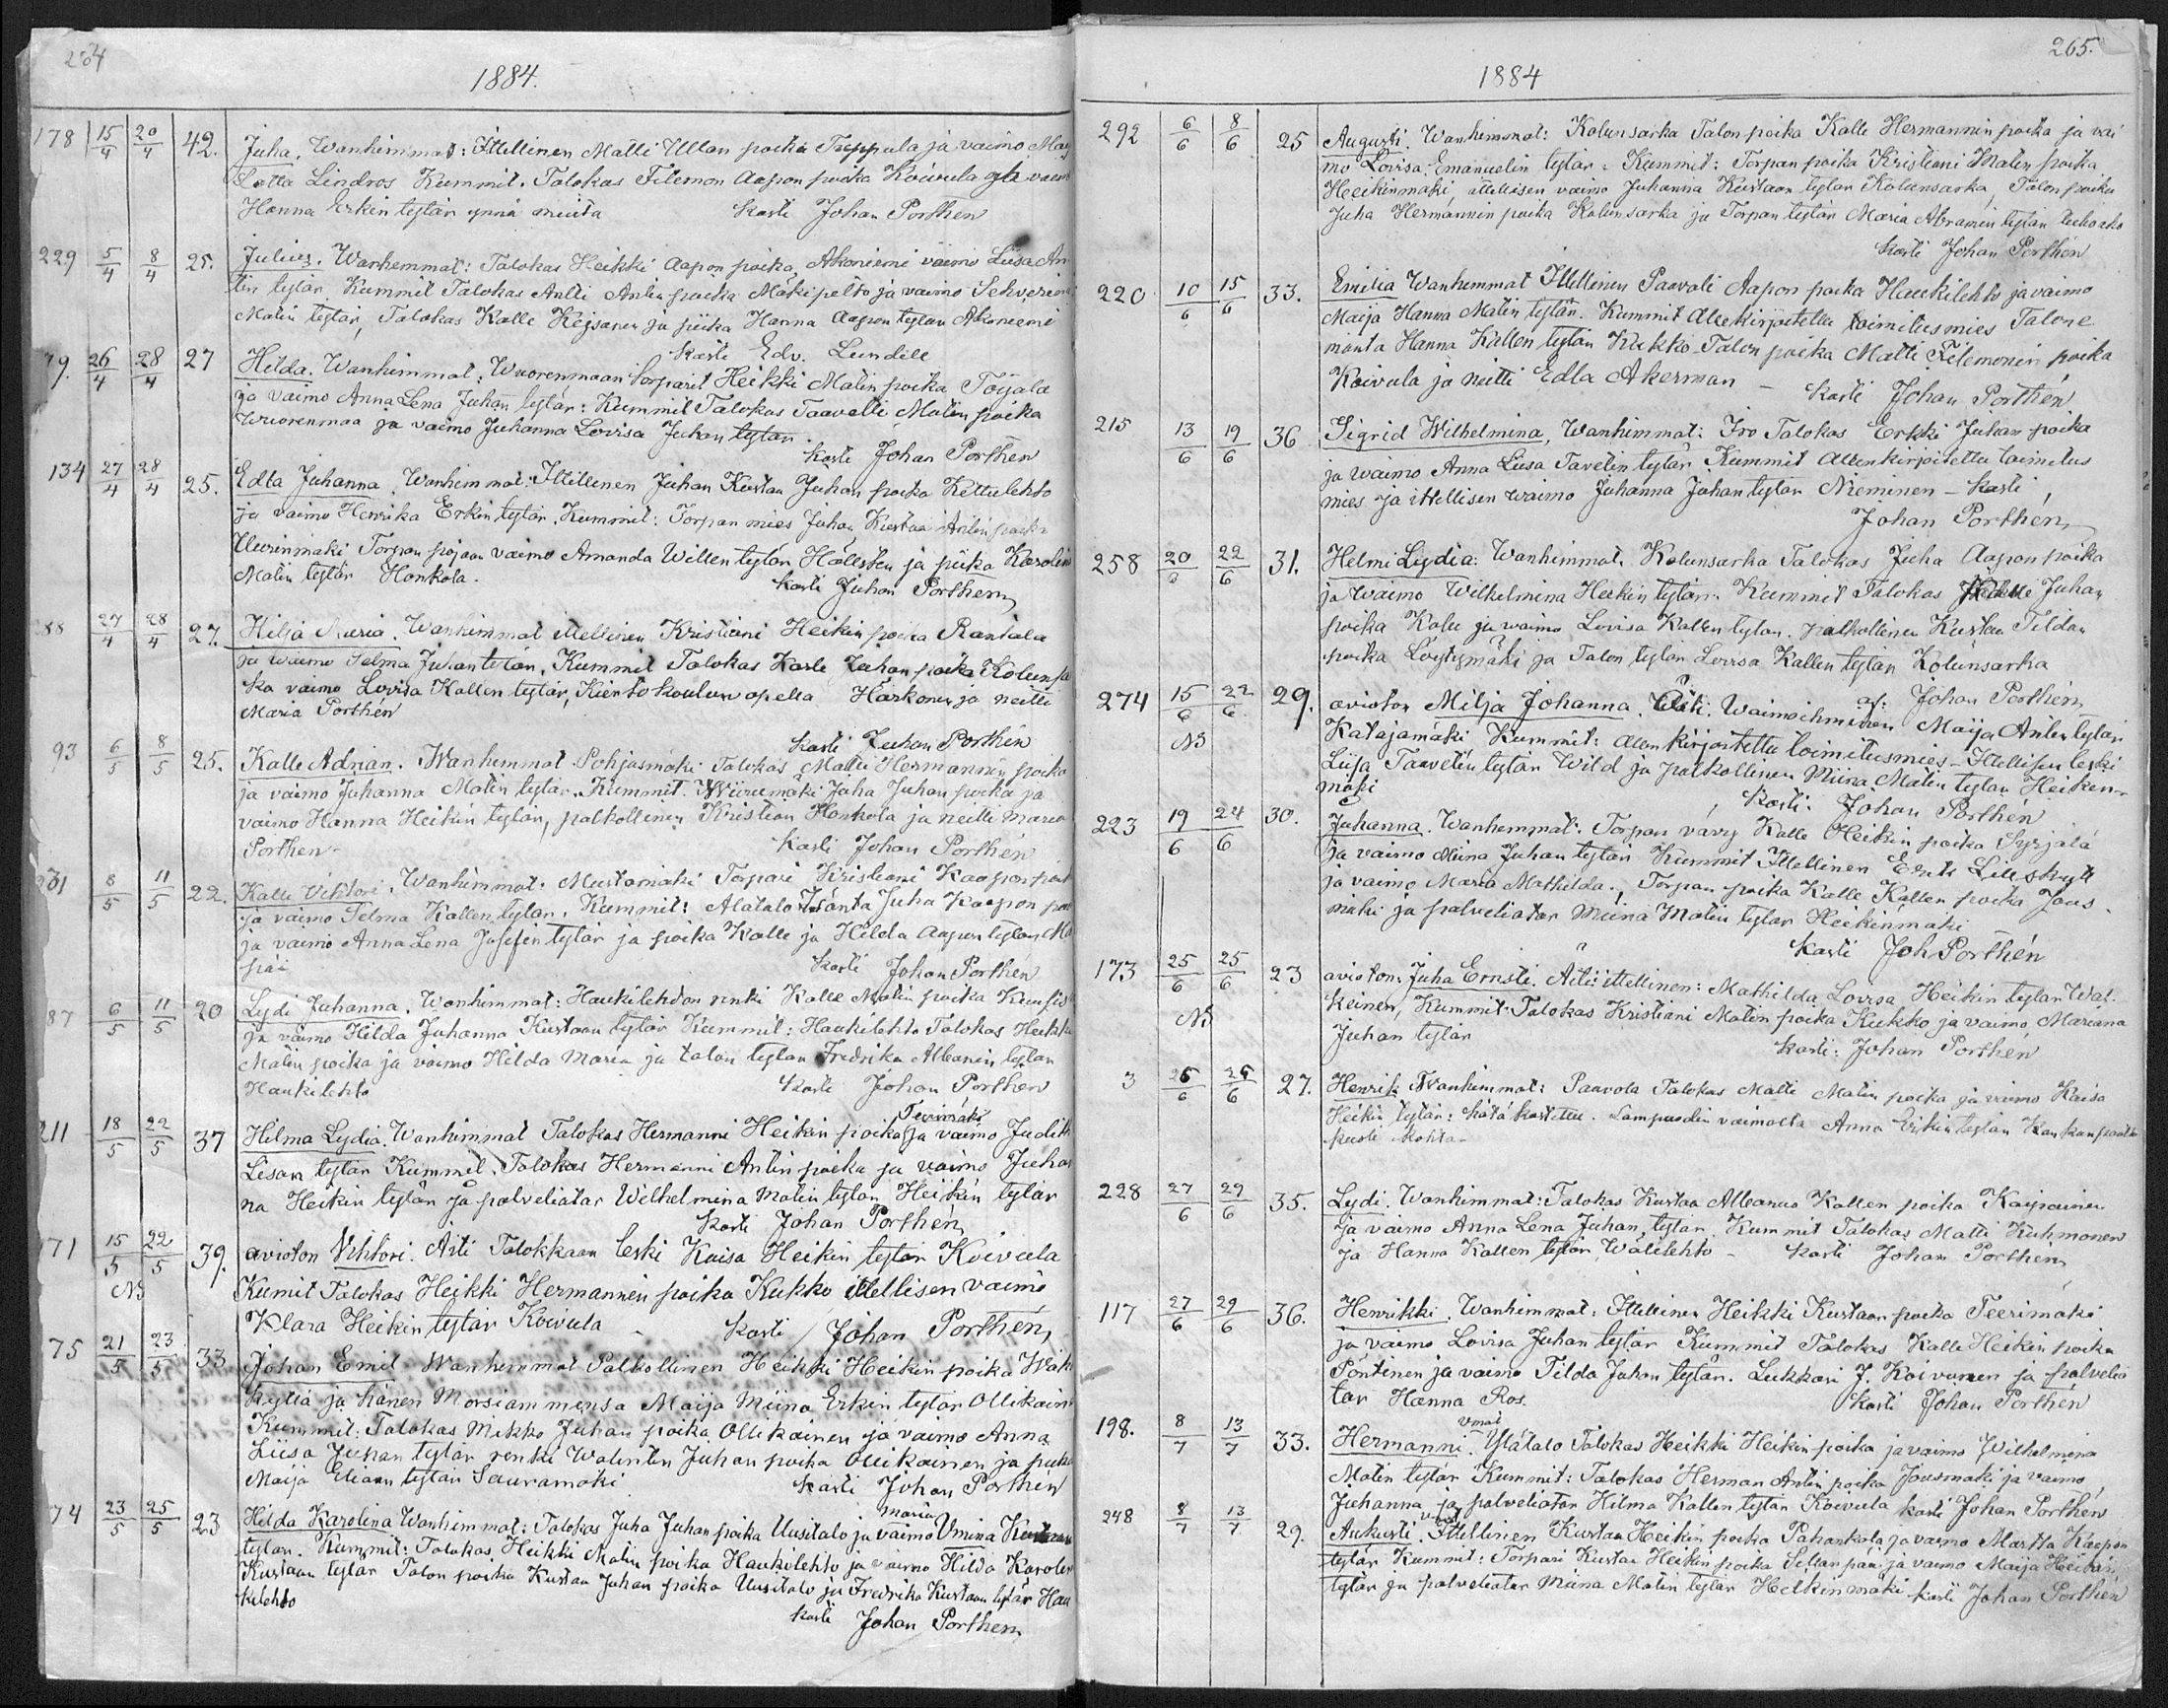 264
1884.
178 15/4 20/4 42. Juha. Wanhimmat: Ittellinen Matti Ullan poika Tuppala ja vaimo
Lotta Lindros Kummit. Talokas Filemon Aapon poika Koivula ja vaimo
Hanna Erkin tytär ynnä muita kasti Johan Porthén
229 5/4 8/4 25. Julius. Wanhemmat: Talokas Heikki Aapon poika Ahoniemi vaimo Liisa An
tin tytär Kummit Talokas Antti Antin poika Mäkipelto ja vaimo
Matin tytär, Talokas Kalle Kejsanen ja piika Hanna Aapon tytär Ahoniemi
kasti Edv. Lundell
79. 26/4 28/4 27 Hilda. Wanhimmat: Wuorenmaan torparit Heikki Matin poika Töyälä
ja vaimo Anna Lena Juhan tytär: Kummit Talokas Taavetti Matin poika
Wuorenmaa ja vaimo Juhanna Lovisa Juhan tytär.
kasti Johan Porthén
134 27/4 28/4 25. Edla Juhanna. Wanhimmat: Ittellinen Juhan Kustaa Juhan poika Kettulehto
ja vaimo Henrika Erkin tytär. Kummit: Torpan mies Juhan Kustaa Antin poika
Torpan pojan vaimo Amanda Willen tytär Hällsten ja piika Karolina
Matin tytär Honkola. kasti Juhan Porthén
88 27/4 28/4 27. Hilja Maria. Wanhimmat ittellinen Kristiani Heikin poika Rantala
ja vaimo Selma Juhan tytär. Kummit Talokas Kalle Juhan poika Kolunsa
ka vaimo Lovisa Kallen tytär, Kiertokoulun opetta Härkonen ja neitti
Maria Porthén
kasti Juhan Porthén
93 6/5 8/5 25. Kalle Adrian. Wanhemmat Pohjasmäki Talokas Matti Hermannin poika
ja vaimo Juhanna Matin tytär. Kummit. Wiirumäki Juha Juhan poika ja
vaimo Hanna Heikin tytär, palkollinen Kristian Honkola ja neitti Maria
Porthén - kasti Johan Porthén
231 8/5 11/5 22. Kalle Vihtori. Wanhimmat: Mustamäki Torpari Kristiani Kaapon poik
ja vaimo Selma Kallen tytär. Kummit: Alatalo Isäntä Juha Kaapon poi
ja vaimo Anna Lena Josefin tytär ja poika Kalle ja Hilda Aapon tytär Mä
pää kasti Johan Porthén
87 6/5 11/5 20 Lydi Juhanna. Wanhimmat: Haukilehdon renki Kalle Matin poika
ja vaimo Hilda Juhanna Kustaan tytär Kummit: Haukilehto Talokas Heikki
Matin poika ja vaimo Hilda Maria ja talon tytär Fredrika Albanin tytär
Haukilehto kasti Johan Porthén
211 18/5 22/5 37 Hilma Lydia. Wanhimmat Talokas Hermanni Heikin poika Teerimäki ja vaimo Judith
Lisan tytär Kummit. Talokas Hermanni Antin poika ja vaimo Juhan
na Heikin tytär ja palveliatar Wilhelmina Matin tytär Heikin tytär
kasti Johan Porthén
171 15/5 22/5 39. avioton Vihtori. Äiti Talokkaan leski Kaisa Heikin tytär Koivula
NB Kumit Talokas Heikki Hermannin poika Kukko ittellisen vaimo
Klara Heikin tytär Koivula - kasti Johan Porthén
75 21/5 23/5 33 Johan Emil. Wanhemmat Palkollinen Heikki Heikin poika Wäh
kylä ja hänen Morsiammensa Maija Miina Erkin tytär Ollikain
Kummit: Talokas Mikko Juhan poika Ollikainen ja vaimo Anna
Liisa Juhan tytär renki Walentin Juhan poika Ollikainen ja piika
Maija Elian tytär Sauramäki kasti Johan Porthén
74 23/5 25/5 23 Hilda Karolina Wanhimmat: Talokas Juha Juhan poika Uusitalo ja vaimo Maria Vmina Kustaan
tytär. Kummit: Talokas Heikki Matin poika Haukilehto ja vaimo Hilda Karolin
Kustaan tytär Talon poika Kustaa Juhan poika Uusitalo ja Fredrika Kustaan tytär Hau
kilehto kasti Johan Porthén
265.
1884
292 6/6 8/6 25 Augusti. Wanhimmat: Kolunsarka Talon poika Kalle Hermannin poika ja vai
mo Lovisa Emanuelin tytär. Kummit: Torpan poika Kristiani Matin poika
Heikinmäki ittellisen vaimo Juhanna Kustaan tytär Kolunsarka, Talon poika
Juha Hermannin poika Kolunsarka ja Torpan tytär Maria Abramin tytär
kasti Johan Porthén
220 10/6 15/6 33. Emilia Wanhemmat Ittellinen Paavali Aapon poika Haukilehto ja vaimo
Maija Hanna Matin tytär. Kummit Allekirjoitettu toimitusmies Talone
mänta Hanna Kallen tytär Kukko Talon poika Matti Filemonin poika
Koivula ja neitti Edla Akerman - kasti Johan Porthén
215 13/6 19/6 36 Sigrid Wilhelmina, Wanhimmat: Iso Talokas Erkki Juhan poika
ja waimo Anna Liisa Tavetin tytär Kummit Allenkirjoitettu toimitus
mies ja ittellisen waimo Juhanna Juhan tytär Nieminen - kasti
Johan Porthén
258 20/6 22/6 31. Helmi Lydia: Wanhimmat. Kolunsarka Talokas Juha Aapon poika
ja waimo Wilhelmina Heikin tytär: Kummit Talokas Kalle Juhan
poika Kolu ja vaimo Lovisa Kallen tytär. palkollinen Kustaa Tildan
poika Löytymäki ja Talon tytär Lovisa Kallen tytär Kolunsarka
af: Johan Porthén
274 15/6 22/6 29. avioton Milja Johanna. Äiti. Waimoihminen Maija Antin tytär
NB Katajamäki Kummit: Allenkirjoitettu toimitusmies - Ittellisen leski
Liisa Taavetin tytär Wild ja palkollinen Miina Matin tytär Heiken-
mäki kasti: Johan Porthén
223 19/6 24/6 30. Juhanna. Wanhemmat: Torpan vävy Kalle Heikin poika Syrjälä
ja vaimo Miina Juhan tytär Kummit Ittellinen
ja vaimo Maria Mathilda., Torpan poika Kalle Kallen poika Jous
mäki ja palveliatar Miina Matin tytär Heikinmäki
kasti Joh Porthén
173 25/6 25/6 23 avioton: Juha Ernsti. Äiti: ittellinen: Mathilda Lovisa Heikin tytär Wal.
NB keinen, Kummit: Talokas Kristiani Matin poika Kukko ja vaimo Mariana
Juhan tytär kasti: Johan Porthén
3 26/6 26/6 27. Henrik Wanhimmat: Paavola Talokas Matti Matin poika ja vaimo Kaisa
Heikin tytär: hätä kastettu. Lampuodin vaimolta Anna Erikin tytär
228 27/6 29/6 35. Lydi. Wanhimmat: Talokas Kustaa Albanus Kallen poika Kaipainen
ja vaimo Anna Lena Juhan tytär. Kummit Talokas Matti Kuhmonen
ja Hanna Kallen tytär Wälilehto - kasti Johan Porthén
117 27/6 29/6 36. Henrikki. Wanhimmat: Ittellinen Heikki Kustaan poika Teerimäki
ja vaimo Lovisa Juhan tytär Kummit Talokas Kalle Heikin poika
Pöntinen ja vaimo Tilda Juhan tytär. Lukkari J. Koivunen ja palvelia
tar Hanna Ros. kasti Johan Porthén
198. 8/7 13/7 33. Hermanni. Vmat Ylätalo Talokas Heikki Heikin poika ja vaimo Wilhelmina
Matin tytär Kummit: Talokas Herman Antin poika Jousmäki ja vaimo
Juhanna ja palveliatar Hilma Kallen tytär Koivula kasti Johan Porthén
248 8/7 13/7 29. Aukusti. Vmat Ittellinen Kustaa Heikin poika Pahankala ja vaimo Martta Kaapon
tytär Kummit: Torpari Kustaa Heikin poika Sillanpää ja vaimo Maija Heikin
tytär ja palveliatar Miina Matin tytär Heikinmäki kasti Johan Porthén